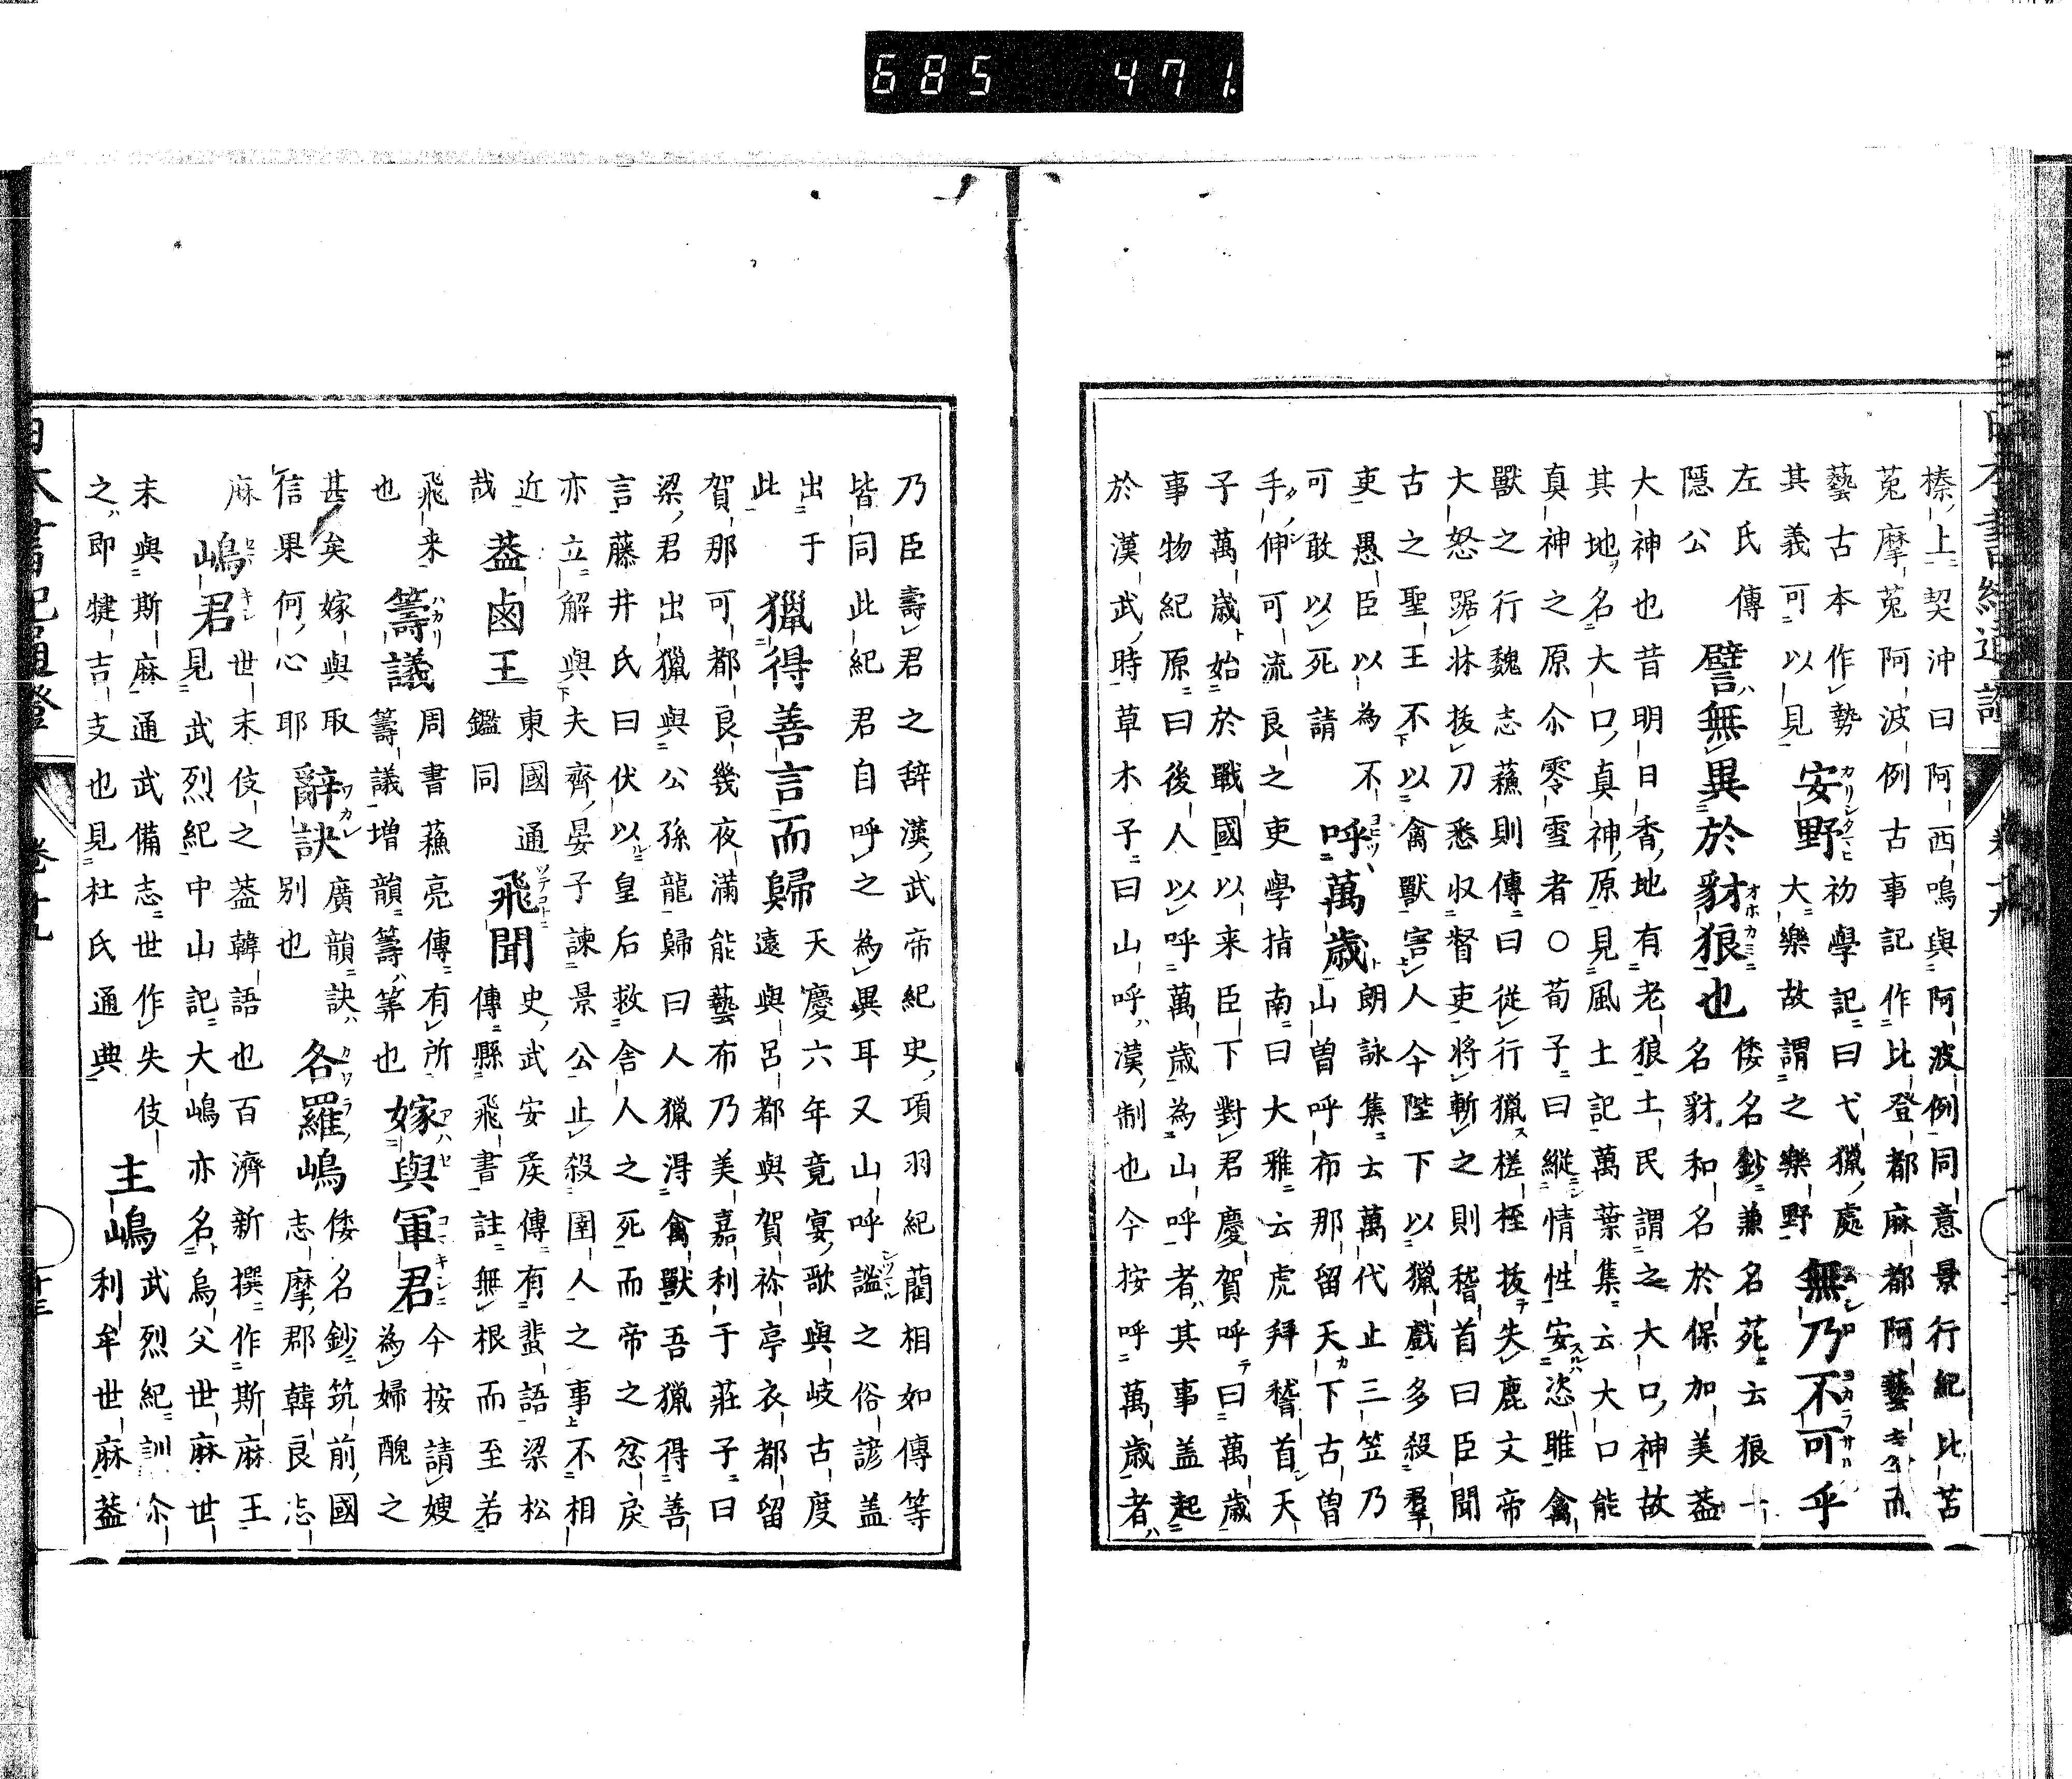 685 471.
榛上契沖曰阿西鳴與阿波例同意景行紀比苫
菟摩菟阿波例古事記作比登都麻都阿藝
藝古本作勢 安野 初學記曰弋獵處 無乃不可乎
其義可以見 大樂故謂之樂野
左氏傳 譬無異於豺狼也 倭名鈔兼名苑云狼一
隱公 名豺和名於保加美葢
大神也昔明日香地有老狼土民謂之大口神故
其地名大口真神原見風土記萬葉集云大口能
真神之原尒零雪者○荀子曰縱情性安恣睢禽
獸之行魏志蘓則傳曰從行獵槎桎拔失鹿文帝
大怒踞牀拔刀悉収督吏將斬之則稽首曰臣聞
古之聖王不以禽獸害人今陛下以獵戲多殺羣
吏愚臣以為不 呼萬歳 朗詠集云萬代止三笠乃
可敢以死請 山曽呼布那留天下古曽
手伸可流良之吏學指南曰大雅云虎拜稽首天
子萬歳始於戰國以来臣下對君慶賀呼曰萬歳
事物紀原曰後人以呼萬歳為山呼者其事盖起
於漢武時草木子曰山呼漢制也今按呼萬歳者
乃臣壽君之辞漢武帝紀史項羽紀藺相如傳等
皆同此紀君自呼之為異耳又山呼謐之俗諺盖
出于 獵得善言而歸 天慶六年竟宴歌與岐古度
此 遠與呂都與賀祢亭衣都留
賀那可都良幾夜滿能藝布乃美嘉利于莊子曰
梁君出獵與公孫龍歸曰人獵得禽獸吾獵得善
言藤井氏曰伏以皇后救舍人之死而帝之忿戾
亦立解與夫齊晏子諫景公止殺圉人之事不相
近 葢鹵王 東國通 飛聞 史武安矦傳有蜚語梁松
哉 鑑同 傳縣飛書註無根而至若
飛来 籌議 周書蘓亮傳有所 嫁與軍君 今按請嫂
也 籌議増韻籌筭也 為婦醜之
甚矣嫁與取 辭訣 廣韻訣 各羅嶋 倭名鈔筑前國
信果何心耶 別也 志摩郡韓良
嶋君 麻世末伎之葢韓語也百濟新撰作斯麻王
見武烈紀中山記大嶋亦名烏父世麻世
末與斯麻通武備志世作失伎 主嶋 武烈紀訓尒
之即犍吉支也見杜氏通典 利牟世麻葢
日本書紀通證 卷十九 十三